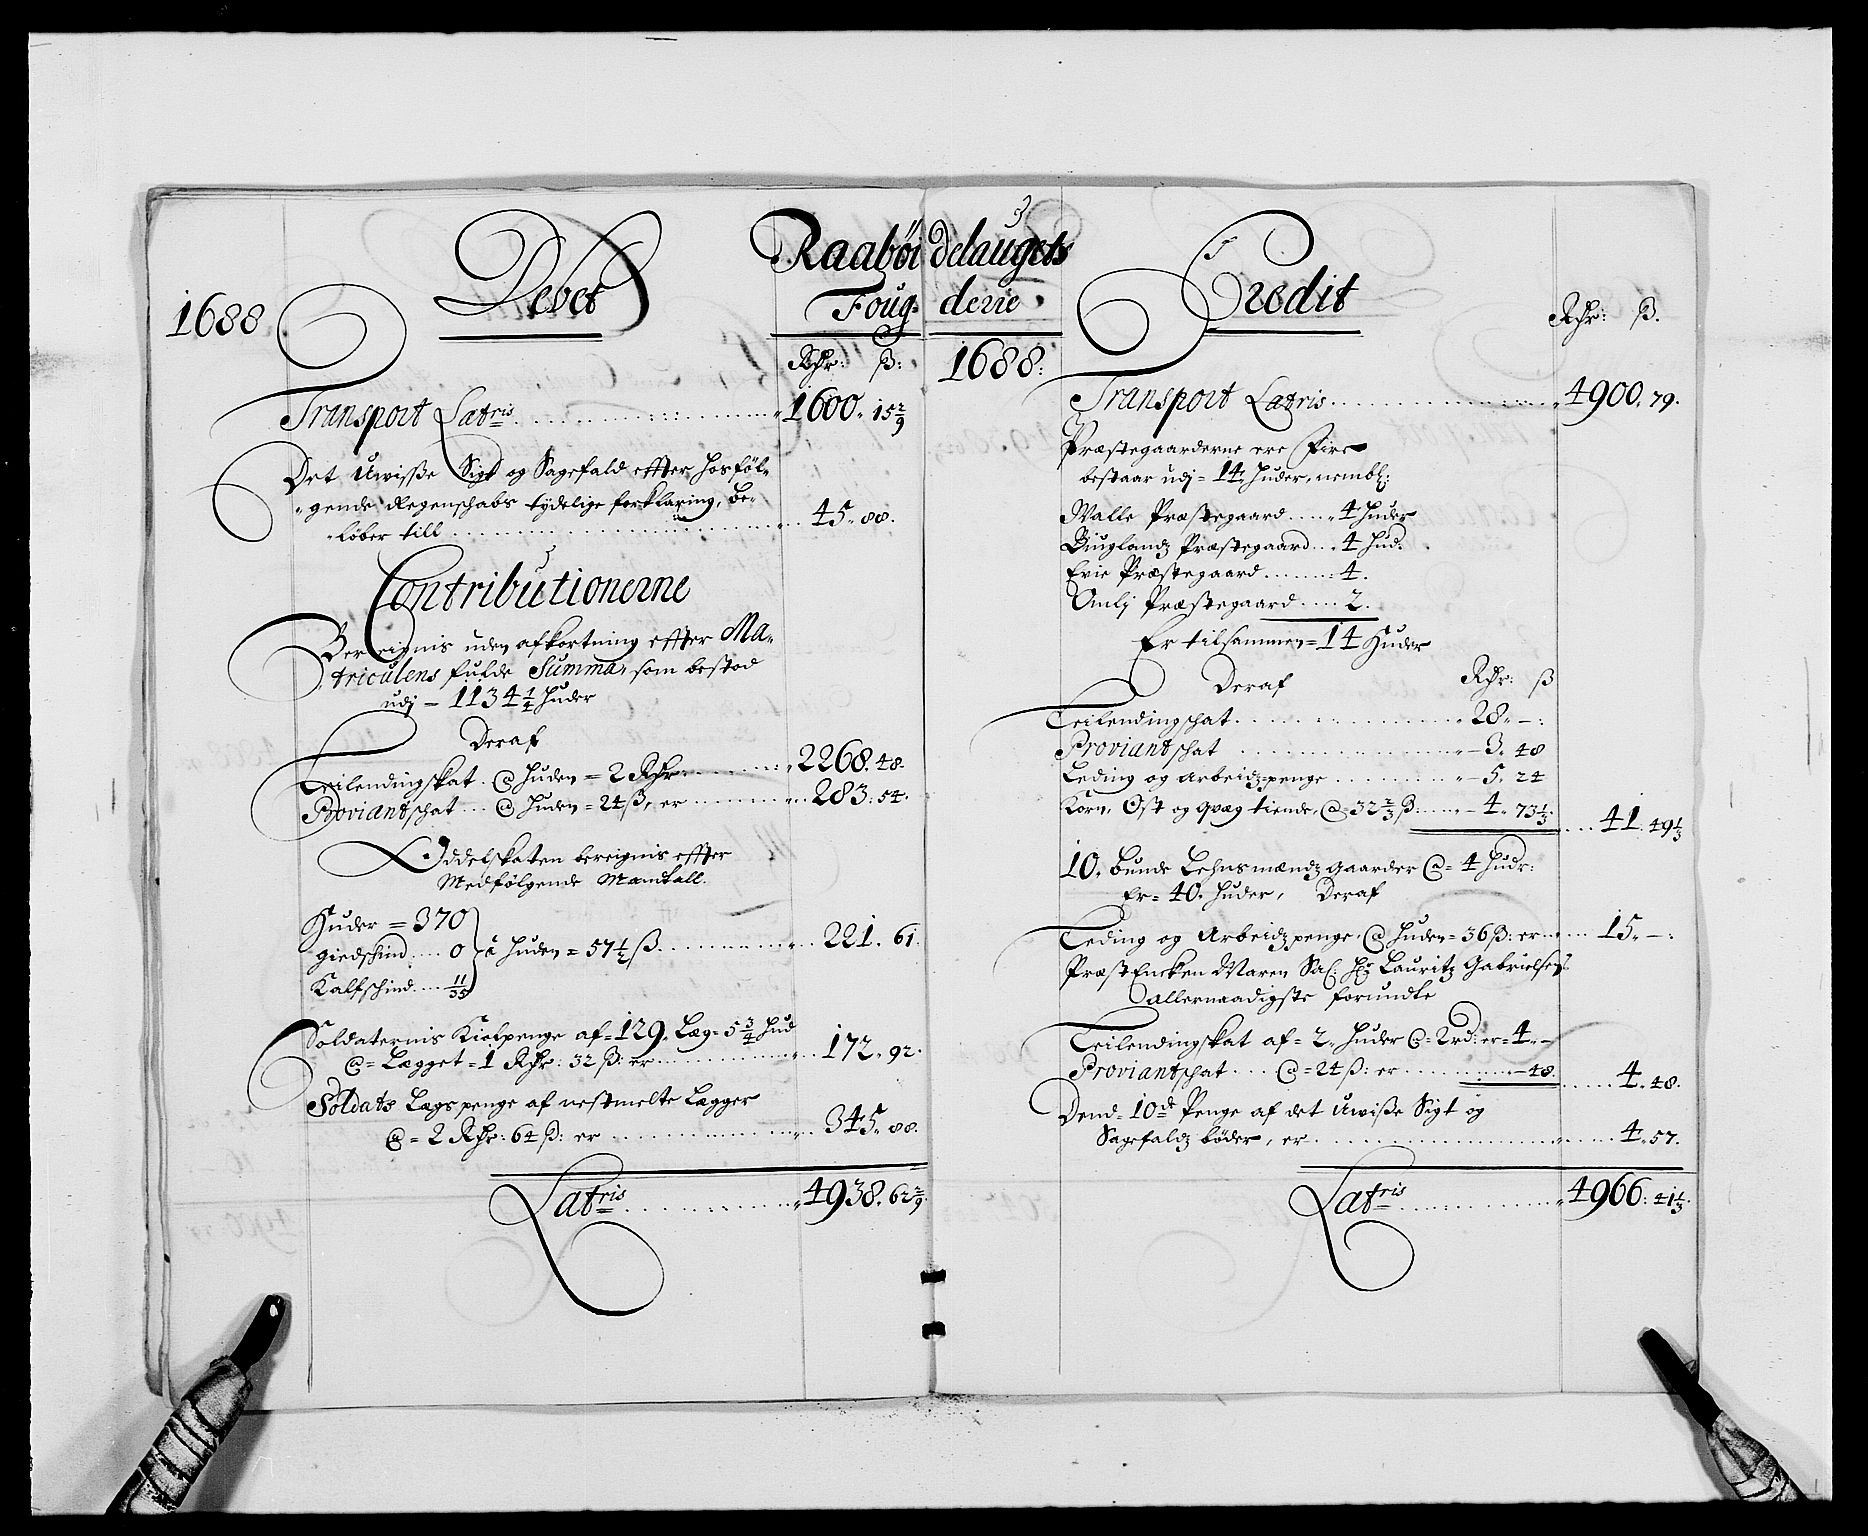 3
Raabøidelaugets
Foug- derie
1688
Debet
1688.
Rdr: ß:
Transport Latris 1600. 15 2/9
Det Uwisse Sigt og Sagefald effter hosföl-
gende Regenschabs tydelige forklaring, be-
løber till 45. 88.
Contributionerne
Bereignis uden afkortning effter Ma-
triculens fulde Summa, som bestod
udj - 1134 1/4 huder
Deraf
Leilendingskat @ huden = 2 Rdr 2268. 48.
Proviantschat @ huden = 24 ß, er 283. 54.
Oddelskatten bereignis effter
Medfölgende Mandtall.
Huder = 370
giedskind 0 á huden = 57 1/2 ß 221. 61.
Kalfschind 11/35
Soldaternis Kiolpenge af = 129. Læg = 5 3/4 hud
@ = Lægget = 1 Rdr: 32 ß: er 172. 92.
Soldats Lægspenge af nestmelte Lægger
@ = 2 Rdr: 64 ß: er 345. 88.
Latris 4938. 62 2/9
Credit
Rdr: ß.
Transport Latris 4900. 79.
Præstegaarderne ere Fire
bestaar udj = 14, huder, nembl:
Walle Præstegaard 4 huder
Biuglandz Præstegaard 4 hud.
Evie Præstegaard 4.
Omlj Præstegaard 2.
Er tilsammen = 14 Huder
Deraf Rdr: ß
Leilendingschat 28. - :
Proviantschat 3. 48
Leding og Arbeidzpenge 5. 24
Korn, Ost og qvæg tiende, @ = 32 2/3 ß 4. 73 1/3 41. 49 1/3
10. Bunde Lehnsmændz gaarder @ = 4 hudr:
Er = 40. huder, Deraf
Leding og Arbeidzpenge, @ huden = 36 ß: er 15. - :
PræstEncken Maren Sal: hr Lauritz Gabrielsens
allernaadigste forundte
Leilendingskat af = 2. huder @ = 2 rd: er = 4. -
Proviantschat @ = 24 ß: er 48. 4. 48.
Dend = 10de Penge af det Uwisse Sigt og
Sagefaldz bøder, er 4. 57.
Latris 4966. 41 1/3